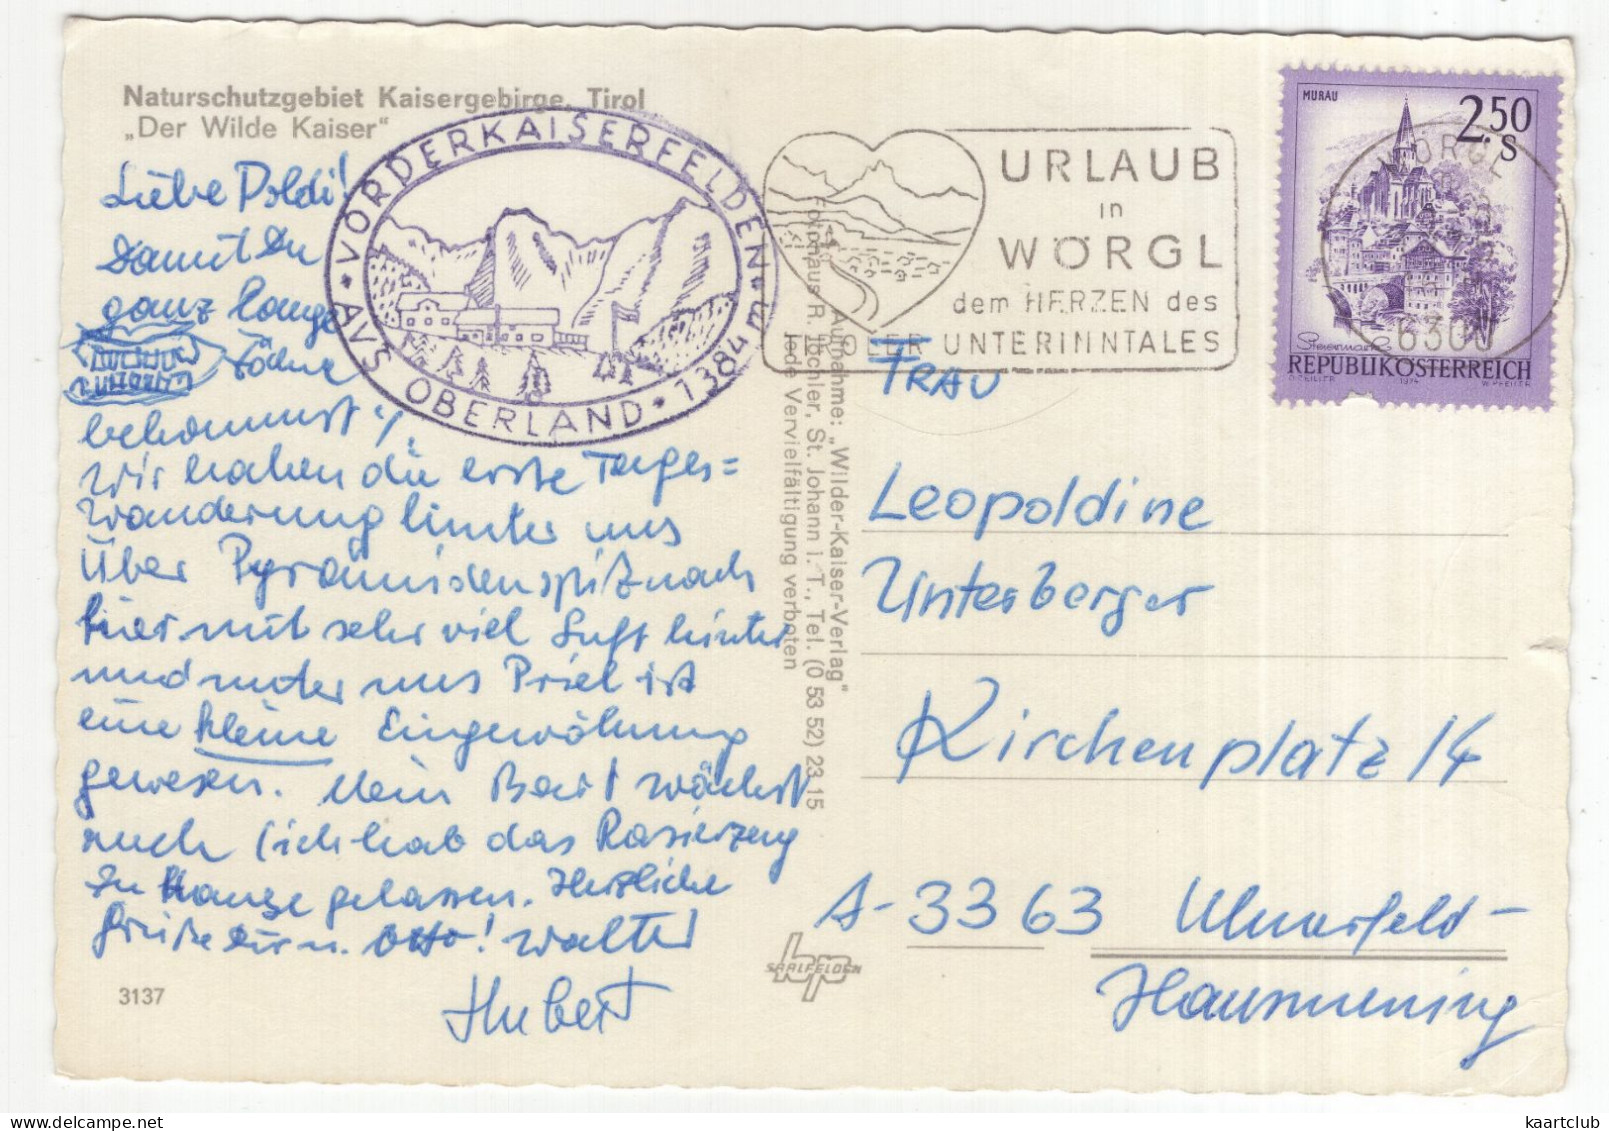 Naturschutzgebiet Kaisergebirge, Tirol
„Der Wilde Kaiser"
Liebe Poldi!
Damit Du
ganz lange
Zähne
bekommst!
Wir haben die erste Tages=
Wanderung hinter uns
Über Pyramidenspitz nach
hier mit sehr viel Luft hinter
und unter uns
eine kleine Eingewöhnung
gewesen. Mein Bart wächst
auch (ich hab das Rasierzeug
zu Hause gelassen. Herzliche
Grüße Dir u. Otto! Walter
Hubert
3137
VORDERKAISERFELDEN 1384 m
AVS OBERLAND
URLAUB
in
WÖRGL
dem HERZEN des
TIROLER UNTERINNTALES
MURAU
2.50
S
Steiermark
REPUBLIK ÖSTERREICH
1974
W. PFEILER
WÖRGL
6300
Aufnahme: „Wilder-Kaiser-Verlag"
Fotohaus R. Jöchler, St. Johann i. T., Tel. (0 53 52) 23 15
Jede Vervielfältigung verboten
hp
SAALFELDEN
FRAU
Leopoldine
Unterberger
Kirchenplatz 14
A-3363 Ulmerfeld-
Hausmening
kaartclub